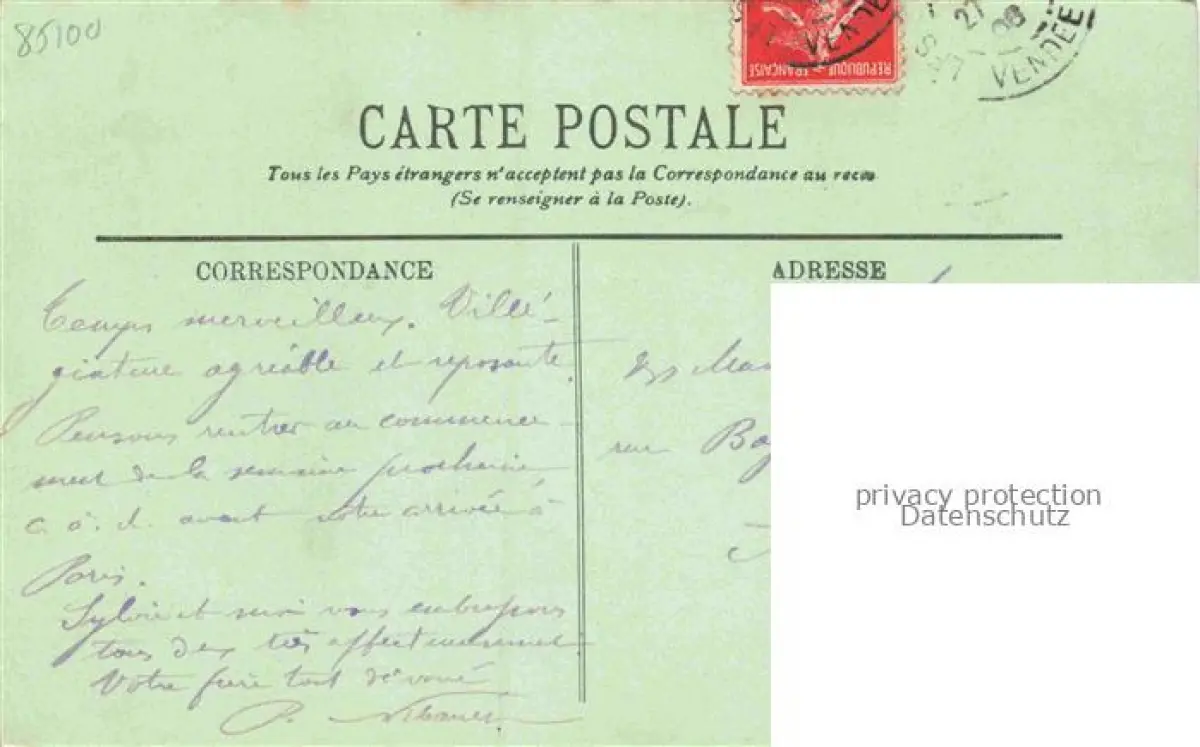 85100
RÉPUBLIQUE FRANÇAISE
VENDÉE
27
08
VENDÉE
CARTE POSTALE
Tous les Pays étrangers n'acceptent pas la Correspondance au recto
(Se renseigner à la Poste).
CORRESPONDANCE
ADRESSE
Temps merveilleux. Villé-
giature agréable et reposante.
Pensons rentrer au commence-
ment de la semaine prochaine
c. à. d. avant votre arrivée à
Paris.
Sylvie et moi vous embrassons
tous deux très affectueusement
Votre frère tout dévoué
P.
rue
privacy protection
Datenschutz